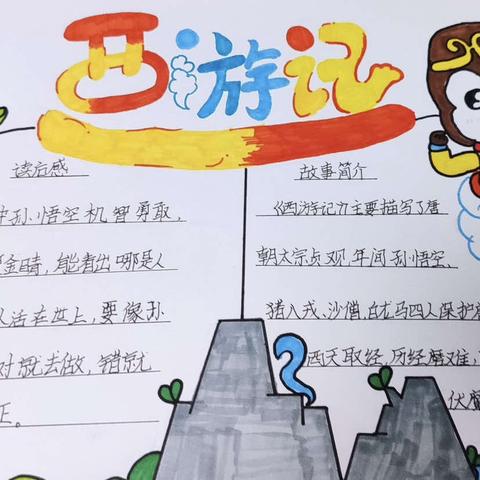 西游记
读后感
孙悟空机智勇敢,
金睛,能看出哪是人
人活在世上,要像孙
对就去做,错就
正。
故事简介
《西游记》主要描写了唐
朝太宗贞观年间孙悟空、
猪八戒、沙僧、白龙马四人保护
西天取经,历经磨难,
伏魔